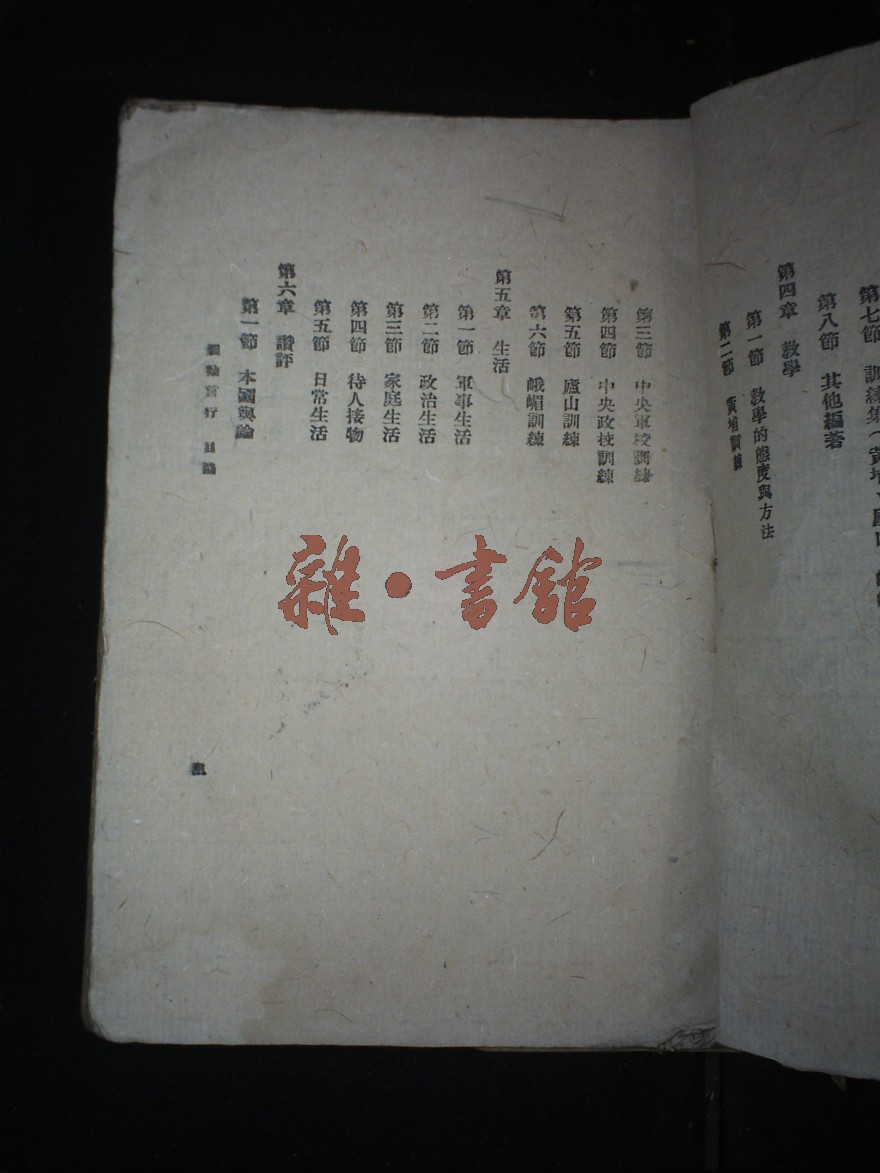 第七節　訓練集（黃埔、廬山、
第八節　其他編著
第四章　教學
第一節　教學的態度與方法
第二節　黃埔訓練
第三節　中央軍校訓練
第四節　中央政校訓練
第五節　廬山訓練
第六節　峨嵋訓練
第五章　生活
第一節　軍事生活
第二節　政治生活
第三節　家庭生活
第四節　待人接物
第五節　日常生活
第六章　讚評
第一節　本國輿論
言行　目錄
雜·書館